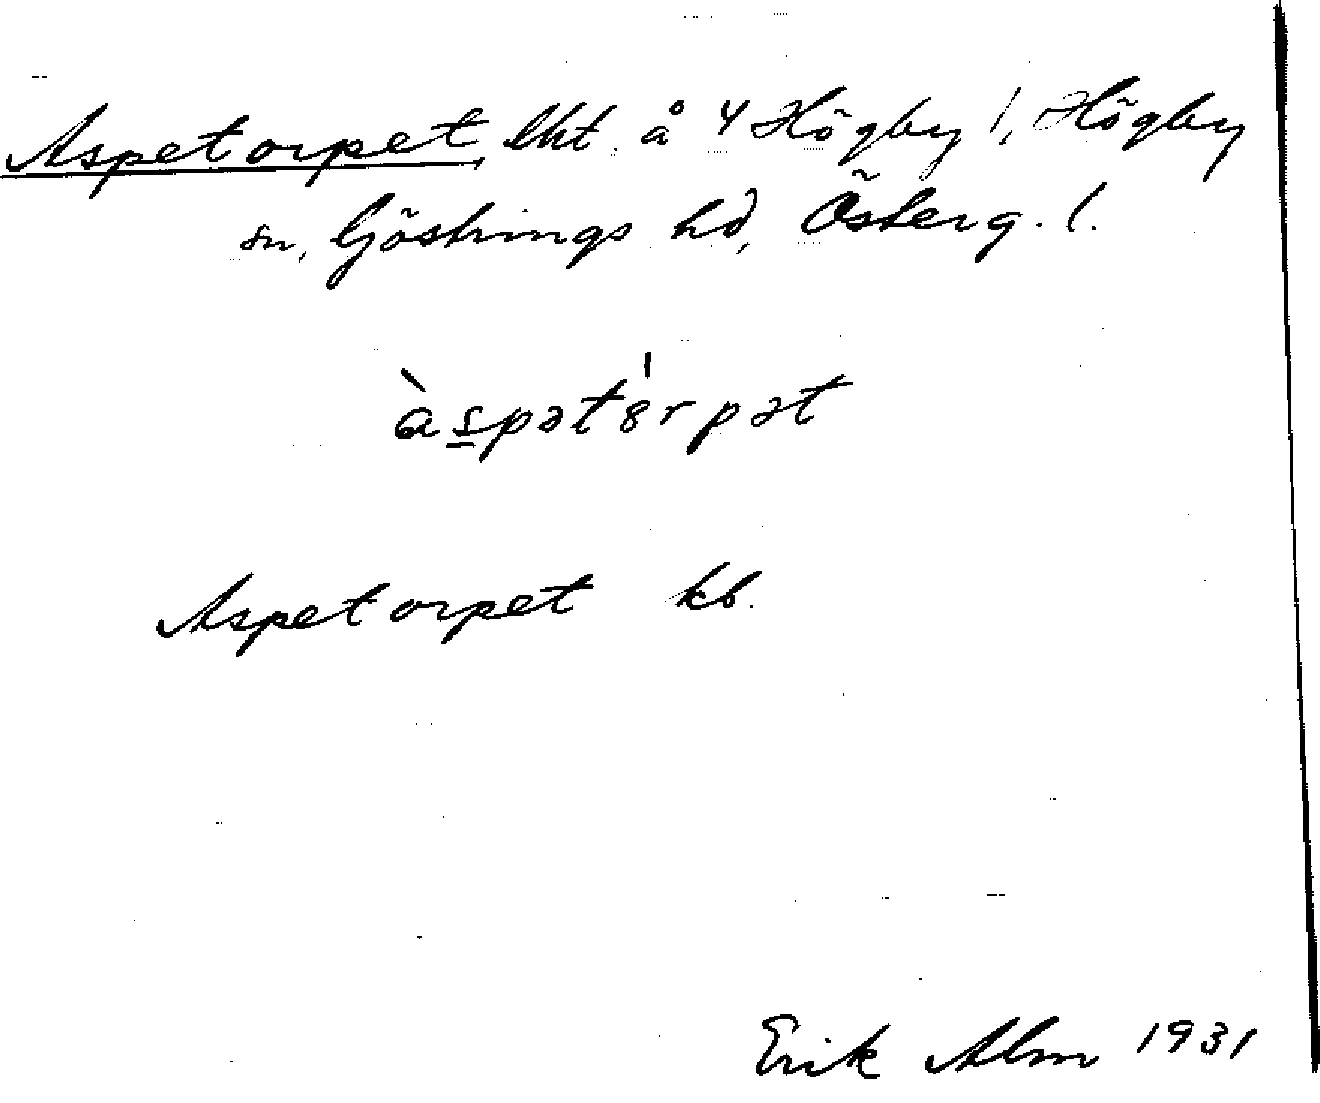 Aspetorpet, lht. å 4 Högby 1, Högby
sn, Göstrings hd, Österg. l.
àspətȣ́rpət
Aspetorpet kb.
Erik Alm 1931